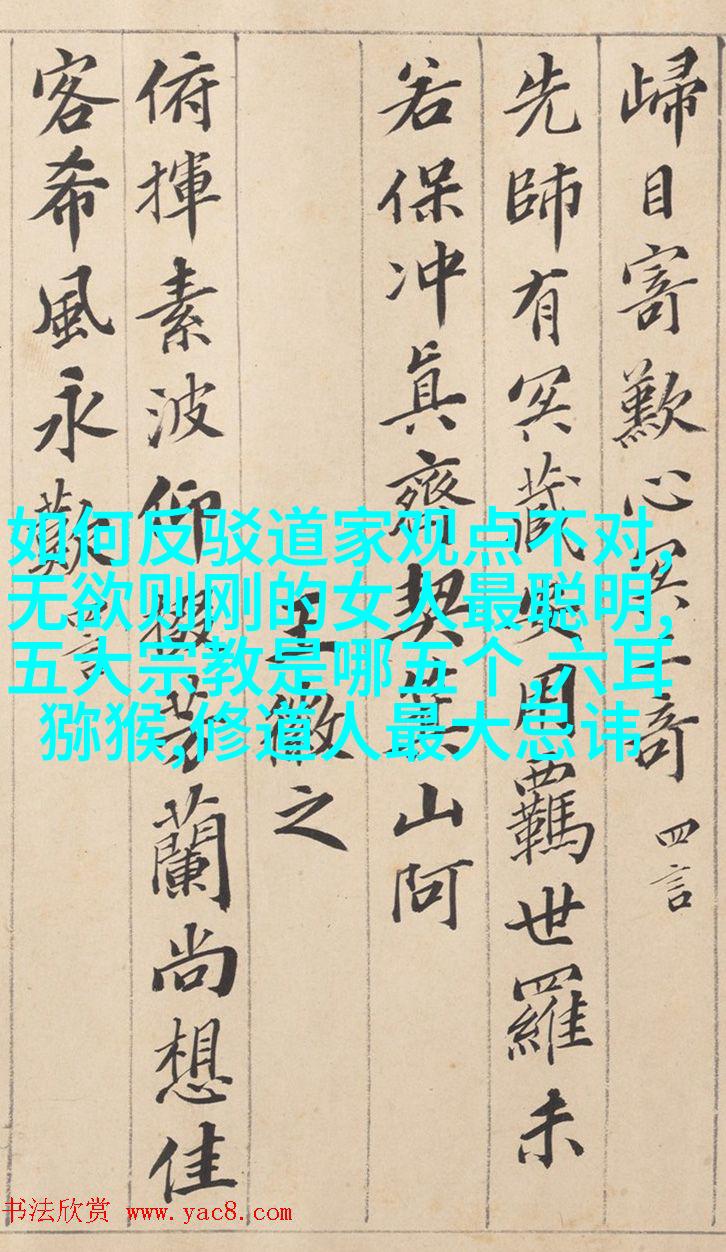 歸目寄歎心冥二奇 四言
先師有冥藏安用羈世羅未
若保冲真齊契箕山阿
王徽之
俯揮素波仰掇芳蘭尚想佳
客希風永歎 言
如何反驳道家观点不对,
无欲则刚的女人最聪明,
五大宗教是哪五个 ,六耳
猕猴,修道人最大忌讳
书法欣赏 www.yac8.com